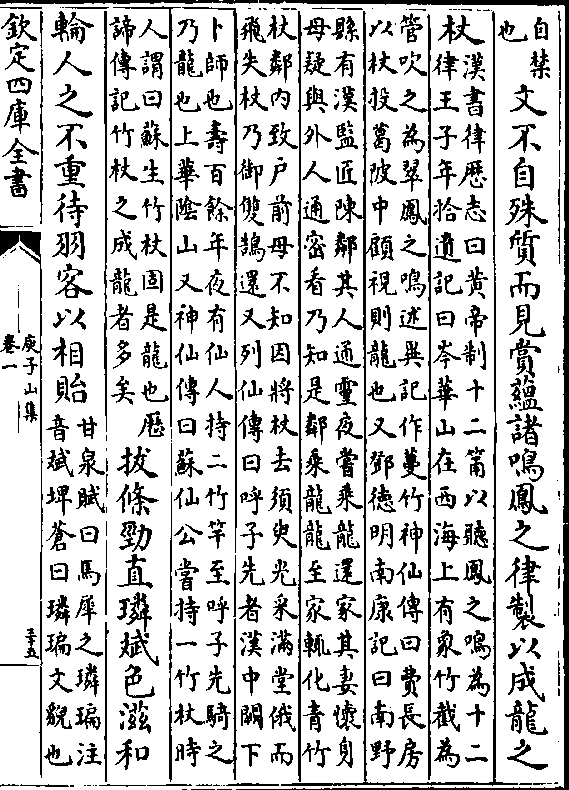 自禁
也
文不自殊質而見賞蘊諸鳴鳳之律製以成龍之
杖
漢書律歷志曰黄帝制十二筩以聽鳳之鳴為十二
律王子年拾遺記曰岑華山在西海上有象竹截為
管吹之為翠鳳之鳴述異記作蔓竹神仙傳曰費長房
以杖投葛陂中顧視則龍也又鄧德明南康記曰南野
縣有漢監匠陳鄰其人通靈夜嘗乘龍還家其妻懷身
母疑與外人通密看乃知是鄰乘龍龍至家輒化青竹
杖鄰内致户前母不知因將杖去須臾光采滿堂俄而
飛失杖乃御雙鵠還又列仙傳曰呼子先者漢中關下
卜師也壽百餘年夜有仙人持二竹竿至呼子先騎之
乃龍也上華陰山又神仙傳曰蘇仙公嘗持一竹杖時
人謂曰蘇生竹杖固是龍也歷
諦傳記竹杖之成龍者多矣
拔條勁直璘斌色滋和
輪人之不重待羽客以相貽
甘泉賦曰馬犀之璘㻞注
音斌埤蒼曰璘㻞文貌也
欽定四庫全書
庾子山集
卷一
三十五